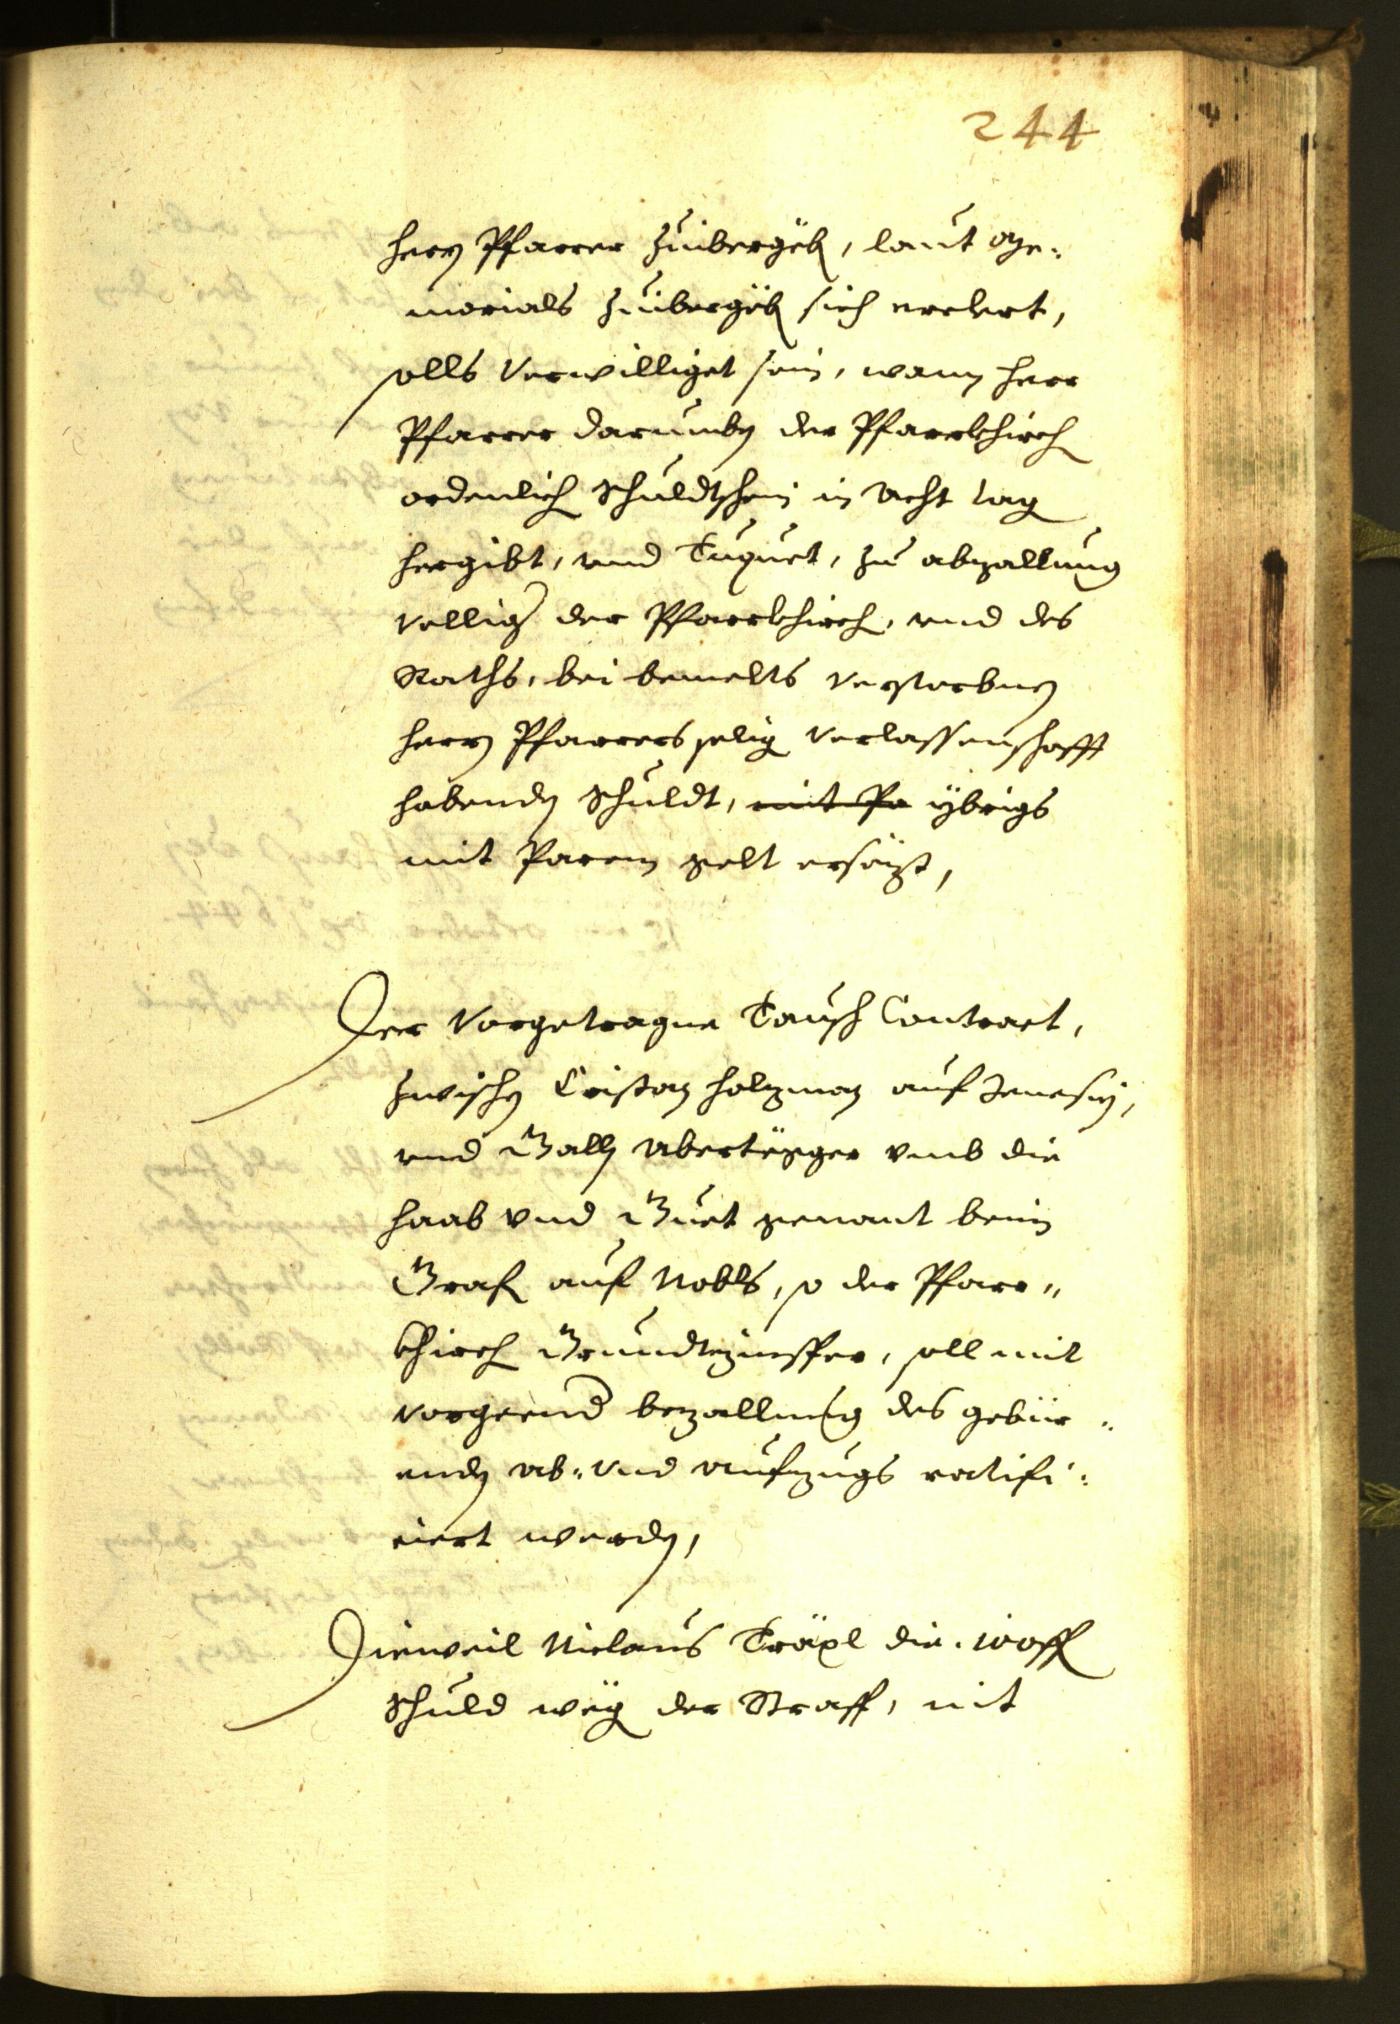 244
herrn Pfarrer zuibergëb, laut me¬
morials zuibergëb sich erclert,
solls Verwilliget sein, wann herr
Pfarrer darumben der Pfarrkhirch
ordenlich Schuldtschein in Acht tag
hergibt, und zu abzallung
völlig der Pfarrkhirch, und des
Raths, bei bemelts verstorbnen
herrn Pfarrers selig Verlassenschafft
habenden Schuldt, mit Pa ybrigs
mit Parem gelt ersözt,
Der Vorgetragne Tausch Contract,
zwischen Cristan Holzman auf Jenesien,
und Gall Abertëgger umb die
haab und Guet genant beim
Graf auf Nobls, so der Pfarr¬
khirch Grundtzinsser, soll mit
vorgeend bezallung des gebür¬
enden ab- und aufzugs ratifi¬
ciert werden,
Dieweil Niclaus Träxl die 100 ff
Schuld wëg der Straff, nit